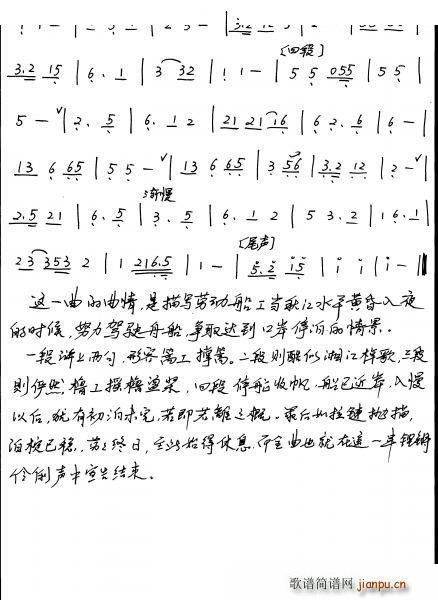 [四段]
3.2 15 | 6. 1 | 3 32 | 1 1 - | 5 5 055 | 5 5 |
5 - ∨ | 2. 5 | 6. 1 2 | 21 21 16 | 6 2. 6 | 6 - |
13 6 65 | 5 5 - ∨ | 13 6 65 | 3 56 | 3.2 12 | 2 - ∨ |
渐慢
2.5 21 | 6. 5 | 3. 5 | 6. 1 2 | 5 3. 2 | 1 6. 1 |
[尾声]
23 353 2 | 1 216.5 | 1 - | 5.2 15 | i i | i - ‖
这一曲的曲情,是描写劳动船工当秋江水平黄昏入夜
的时候,努力驾驶舟船,争取达到口岸停泊的情景。
一段洋上两句,形容篙工撑篙。二段则酷似湘江棹歌,三段
则伊然橹工摇橹荡桨,四段停船收帆,船已近岸,入慢
以后,就有初泊未定,若即若离之概。最后如拉链抛描,
泊椗已稳,劳之终日,至此始得休息,而全曲也就在这一串
伶俐声中宣告结束。
歌谱简谱网
jianpu.cn